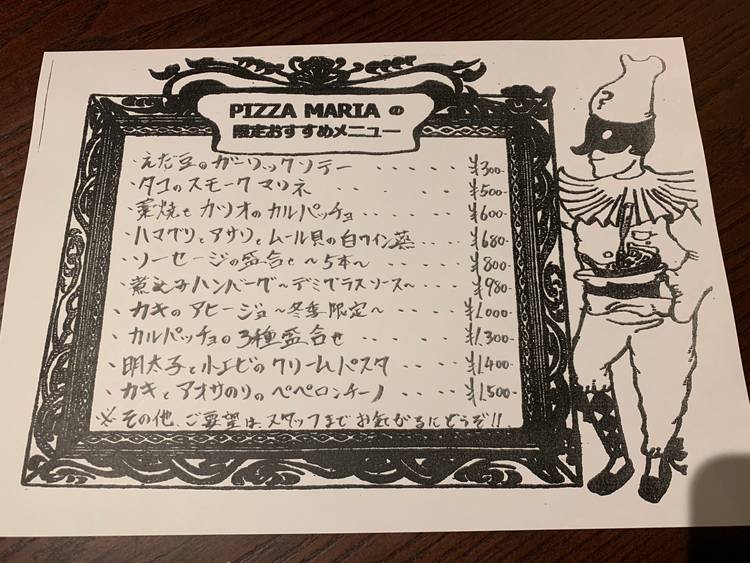 PIZZA MARIA の
限定おすすめメニュー
・えだ豆のガーリックソテー ・・・・ ¥300-
・タコのスモークマリネ ・・・・・ ¥500-
・藁焼きカツオのカルパッチョ ・・・・・ ¥600-
・ハマグリとアサリとムール貝の白ワイン蒸 ・・・・ ¥680-
・ソーセージの盛合せ〜5本〜 ・・・・・ ¥800-
・煮込みハンバーグ〜デミグラスソース〜 ・・・・ ¥980-
・カキのアヒージョ〜冬季限定〜 ・・・・ ¥1.000-
・カルパッチョの3種盛合せ ・・・・・ ¥1.300-
・明太子と小エビのクリームパスタ ・・・・ ¥1400-
・カキとアオサのりのペペロンチーノ ・・・ ¥1.500-
※その他、ご要望はスタッフまでお気がるにどうぞ!!
?